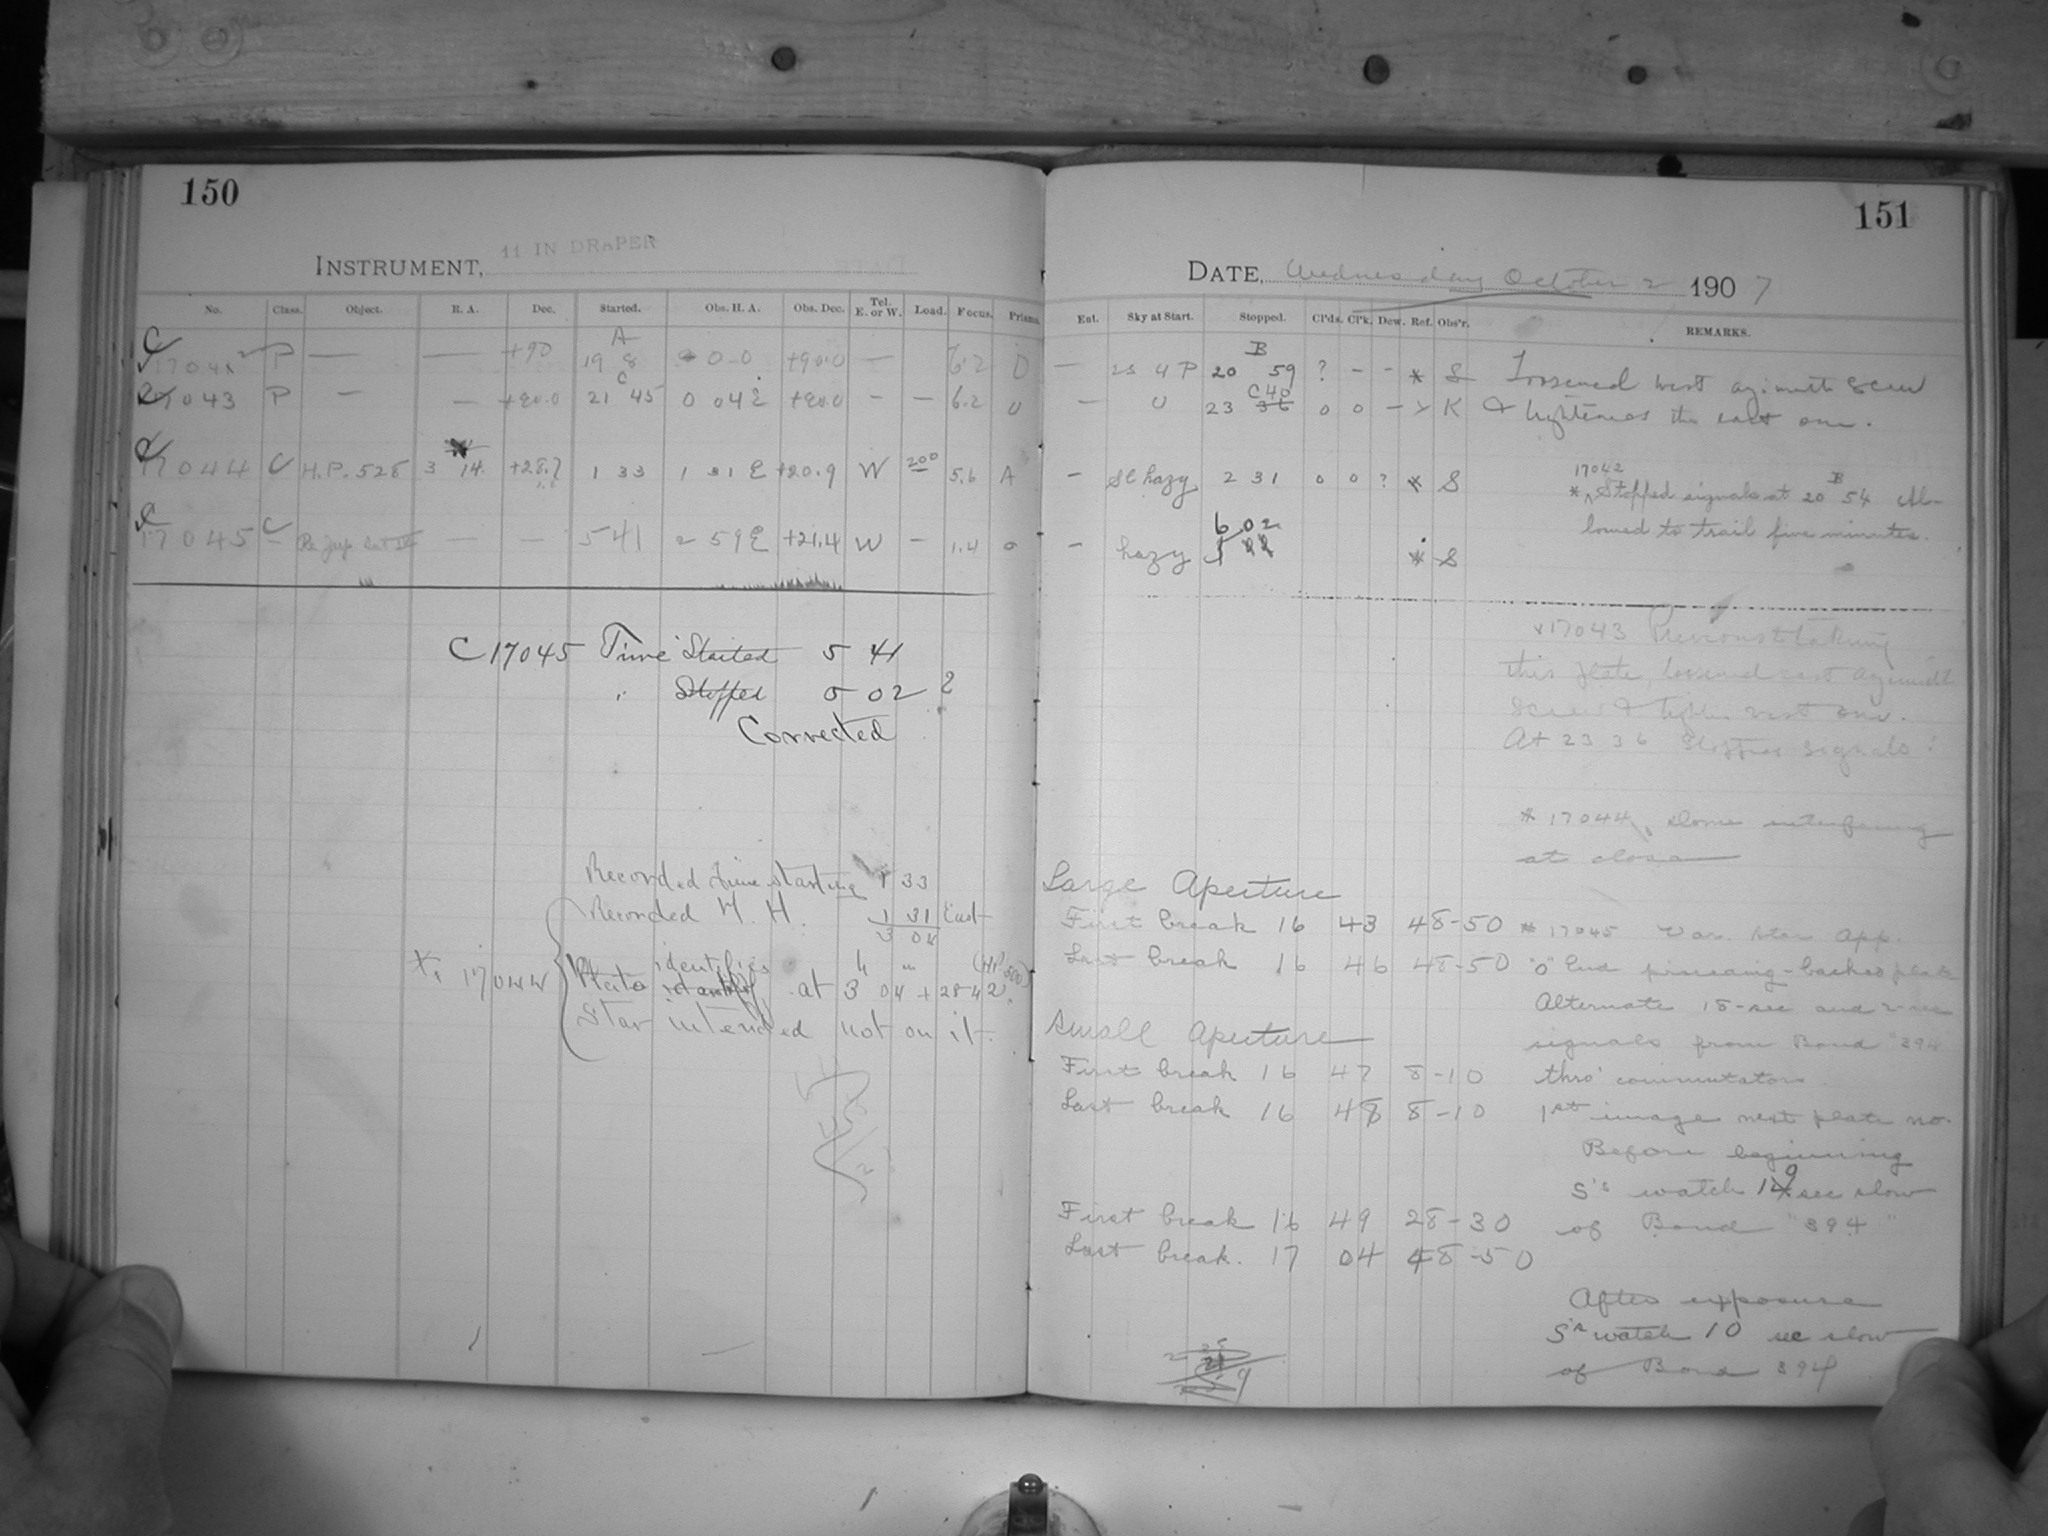 150
INSTRUMENT, 11 IN DRAPER
No. Class. Object. R. A. Dec. Started. Obs. H. A. Obs. Dec. Tel. E. or W. Load. Focus. Prisms.
C 17042 P — — +90 A 19 8 0 0 +90.0 — 6.2 0
C 17043 P — — +90.0 C 21 45 0 04 E +90.0 — — 6.2 0
C 17044 C H.P. 528 3 14 +28.7 1 33 1 31 E +20.9 W 200 5.6 A
C 17045 C — — 5 41 2 59 E +21.4 W — 1.4 0
C 17045 Time Started 5 41
" Stopped 5 02 ?
Corrected
Recorded time starting 1 33
Recorded H. H. 1 31 East
3 04
identifies
17044 Plate at 3 04 + 28 42 (HP 500)
Star intended not on it.
151
DATE, Wednesday October 2 1907
Ent. Sky at Start. Stopped. Cl'ds. Cl'k. Dew. Ref. Obs'r. REMARKS.
— B 20 59 ? - - * S Loosened west azimuth screw
— 0 23 36 C 40 0 0 — K & tightened the east one.
— Sl hazy 2 31 0 0 ? * S
* 17042 Stopped signals at 20 B 54 Al-
lowed to trail five minutes.
— hazy 6 02 * S
17043 Previous to taking
this plate, loosened east azimuth
screw & west one.
At 23 36 stopped signals.
* 17044 Dome interfering
at close
Large Aperture
First break 16 43 48-50
Last break 16 46 48-50
* 17045 Var. star app.
"0" End backed plate
Alternate 18-sec and 2-sec
signals from Bond "394
thro' commutator.
Small Aperture
First break 16 47 8-10
Last break 16 48 8-10
1st image next plate no.
Before beginning
S's watch 19 sec slow
of Bond "394"
First break 16 49 28-30
Last break. 17 04 48-50
After exposure
S's watch 10 sec slow
of Bond 394